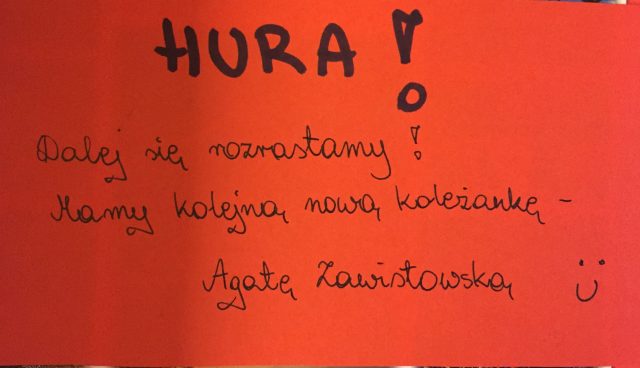 HURA!
Dalej się rozrastamy!
Mamy kolejną nową koleżankę -
Agatę Zawistowską :)